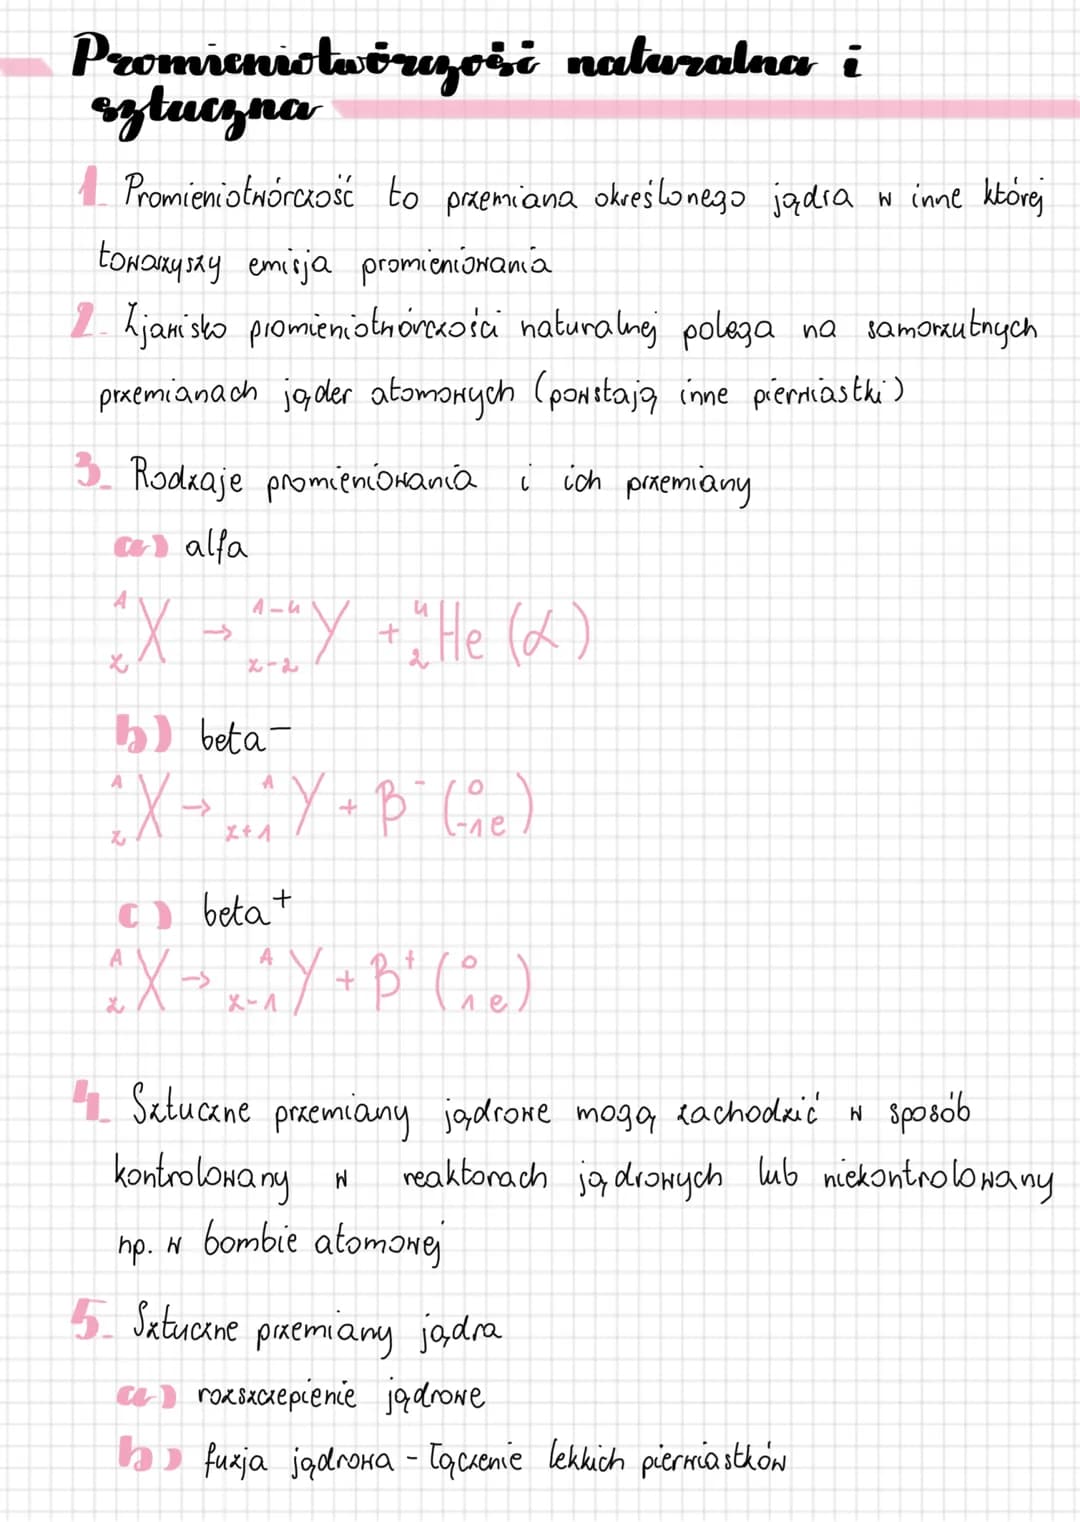 Promieniotwórczość naturalna i
sztuczna
1. Promieniotwórczość to przemiana określonego jądra w inne której
towarzyszy emisja promieniowania
2. Zjawisko promieniotwórczości naturalnej polega na samorzutnych
przemianach jąder atomowych (powstają inne pierwiastki)
3. Rodzaje promieniowania i ich przemiany
a) alfa
ᴬ_z X → ᴬ⁻⁴_z-2 Y + ⁴₂He (α)
b) beta⁻
ᴬ_z X → ᴬ_z+1 Y + β⁻ (⁰₋₁e)
c) beta⁺
ᴬ_z X → ᴬ_z-1 Y + β⁺ (⁰₁e)
4. Sztuczne przemiany jądrowe mogą zachodzić w sposób
kontrolowany w reaktorach jądrowych lub niekontrolowany
np. w bombie atomowej
5. Sztuczne przemiany jądra
a) rozszczepienie jądrowe
b) fuzja jądrowa - łączenie lekkich pierwiastków